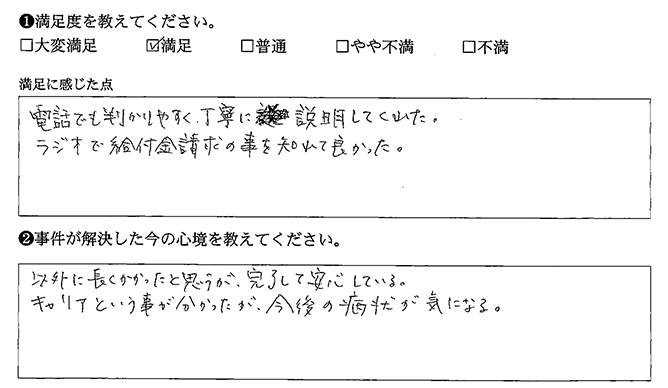 ❶満足度を教えてください。
□大変満足 ☑満足 □普通 □やや不満 □不満
満足に感じた点
電話でも判かりやすく、丁寧に 説明してくれた。
ラジオで給付金請求の事を知れて良かった。
❷事件が解決した今の心境を教えてください。
以外に長くかかったと思うが、完了して安心している。
キャリアという事が分かったが、今後の病状が気になる。